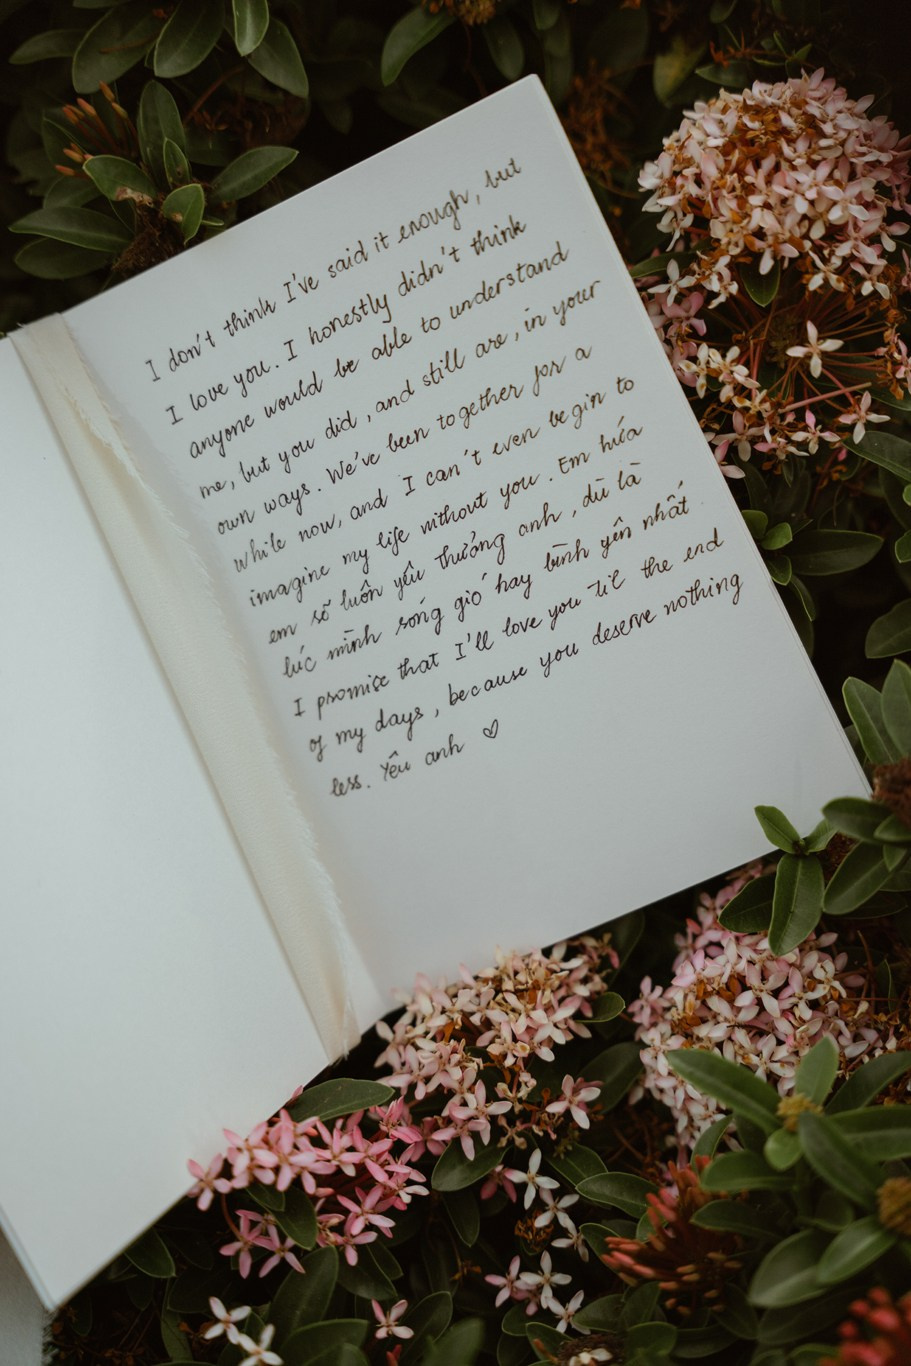 I don't think I've said it enough, but
I love you. I honestly didn't think
anyone would be able to understand
me, but you did, and still are, in your
own ways. We've been together for a
while now, and I can't even begin to
imagine my life without you. Em hứa
em sẽ luôn yêu thương anh, dù là
lúc mình sóng gió hay bình yên nhất.
I promise that I'll love you til the end
of my days, because you deserve nothing
less. Yêu anh ♡